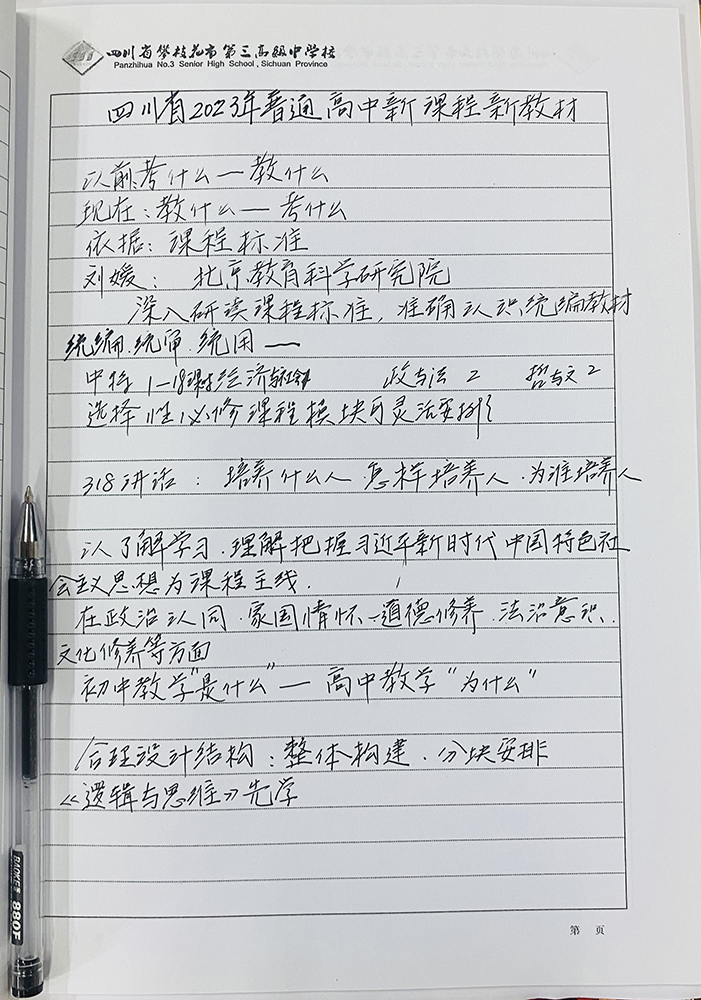 四川省攀枝花市第三高级中学校
Panzhihua No.3 Senior High School , Sichuan Province
四川省2023年普通高中新课程新教材
以前:考什么—教什么
现在:教什么—考什么
依据:课程标准
刘媛: 北京教育科学研究院
深入研读课程标准,准确认识统编教材
统编.统审.统用—
1—18课时经济与社会 政与法 2 哲与文 2
选择性必修课程模块可灵活安排
318讲话: 培养什么人.怎样培养人.为谁培养人
以了解学习.理解把握习近平新时代中国特色社
会主义思想为课程主线.
在政治认同.家国情怀—道德修养.法治意识.
文化修养等方面
初中教学"是什么"— 高中教学"为什么"
合理设计结构:整体构建.分块安排
《逻辑与思维》先学
第 页
BAOKE
880F